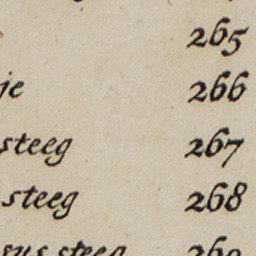 265
je 266
steeg 267
steeg 268
sus steeg 269